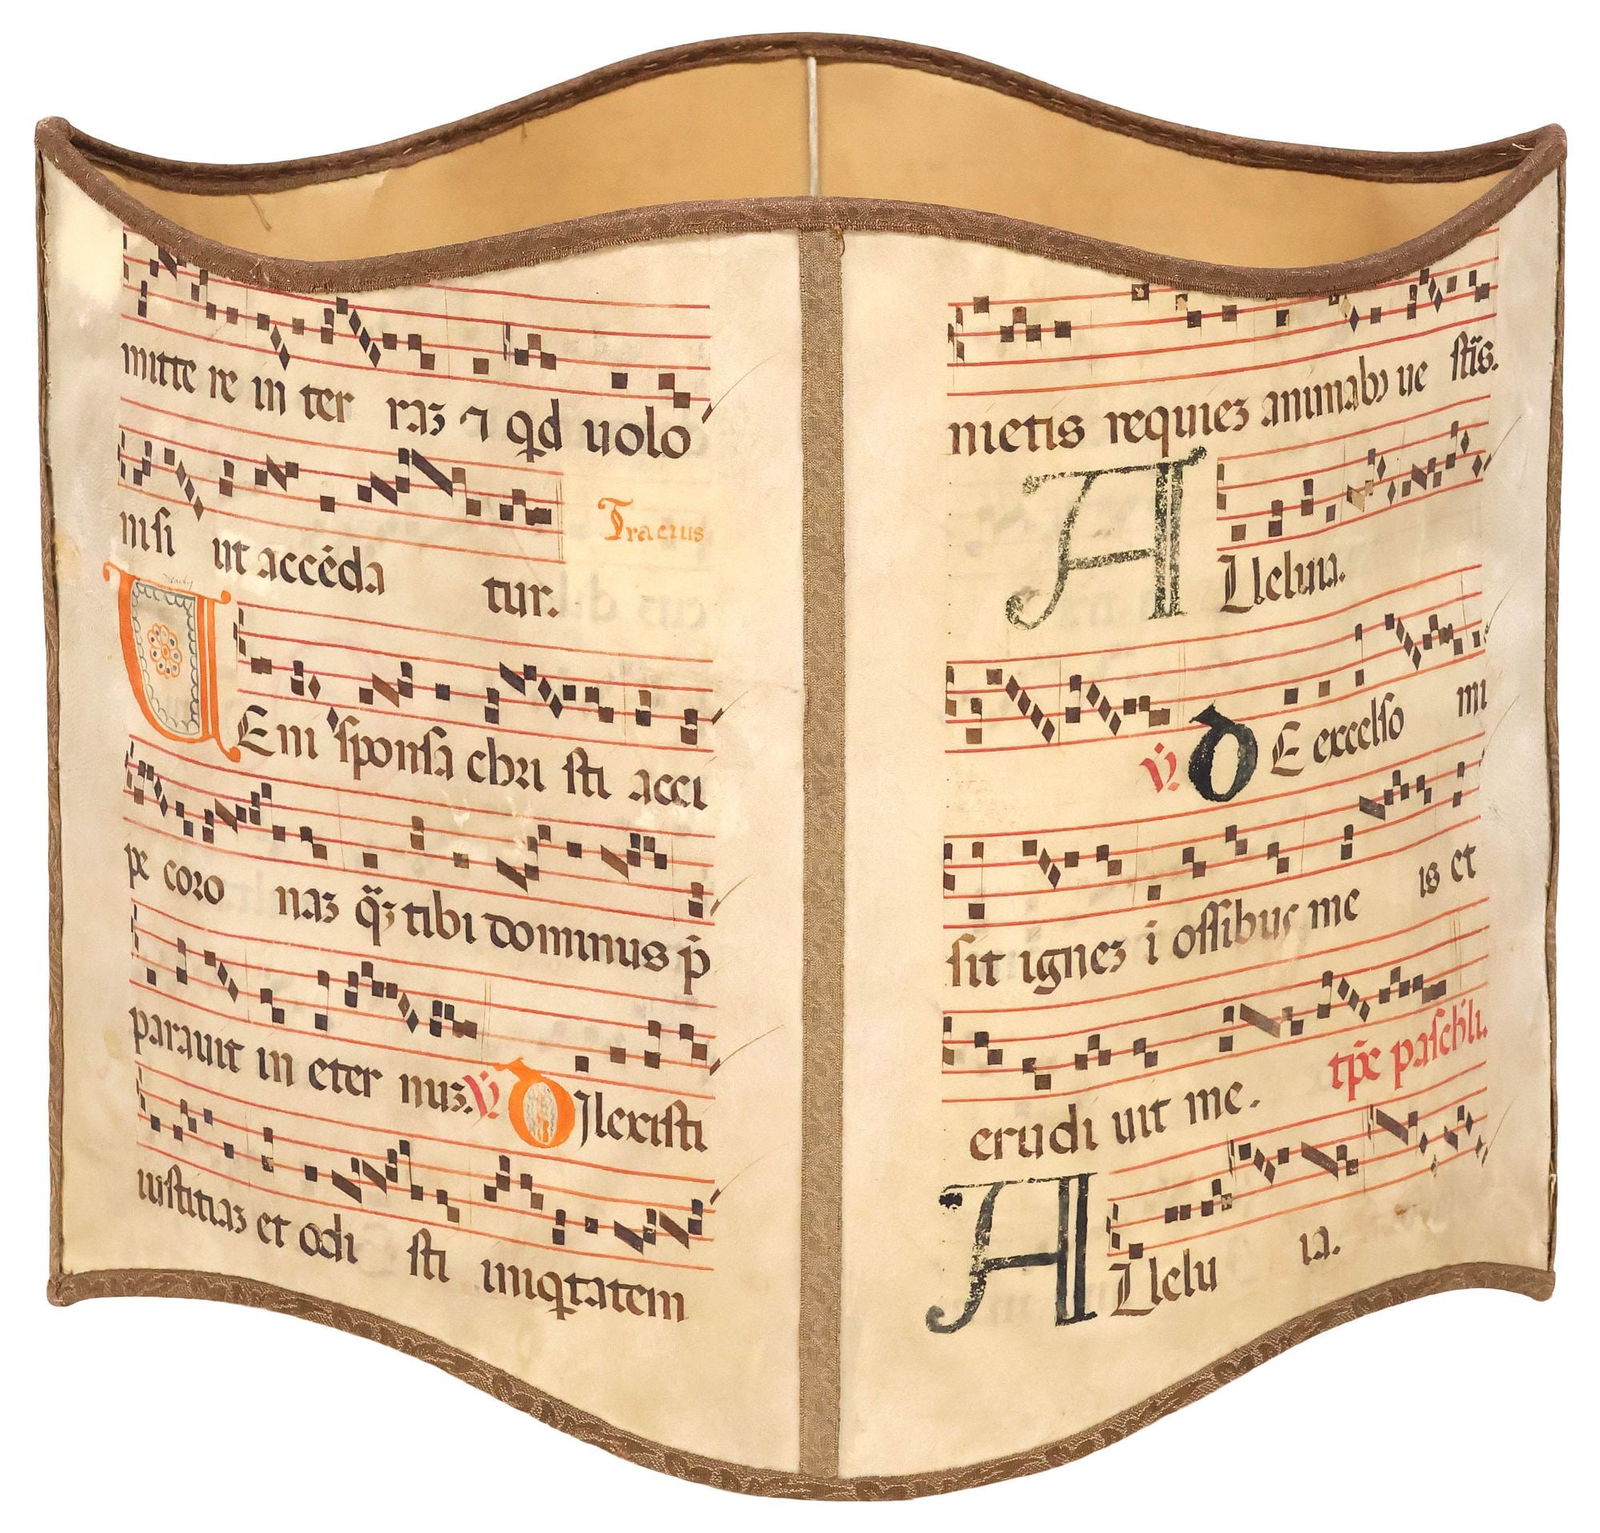 mitte re in ter raz ⁊ qd uolo
nisi ut accēda tur.
Tractus
UEni sponsa chri sti acci
pe coro naz q̃z tibi dominus p̄
parauit in eter nuz. ℣. DIlexisti
iustitiaz et odi sti iniqtatem
nietis requiez animabꝫ ue stīs.
ALleluia.
℣. DE excelso mi
sit ignez ī ossibus me is et
erudi uit me. tp̄e paschli.
ALlelu ia.